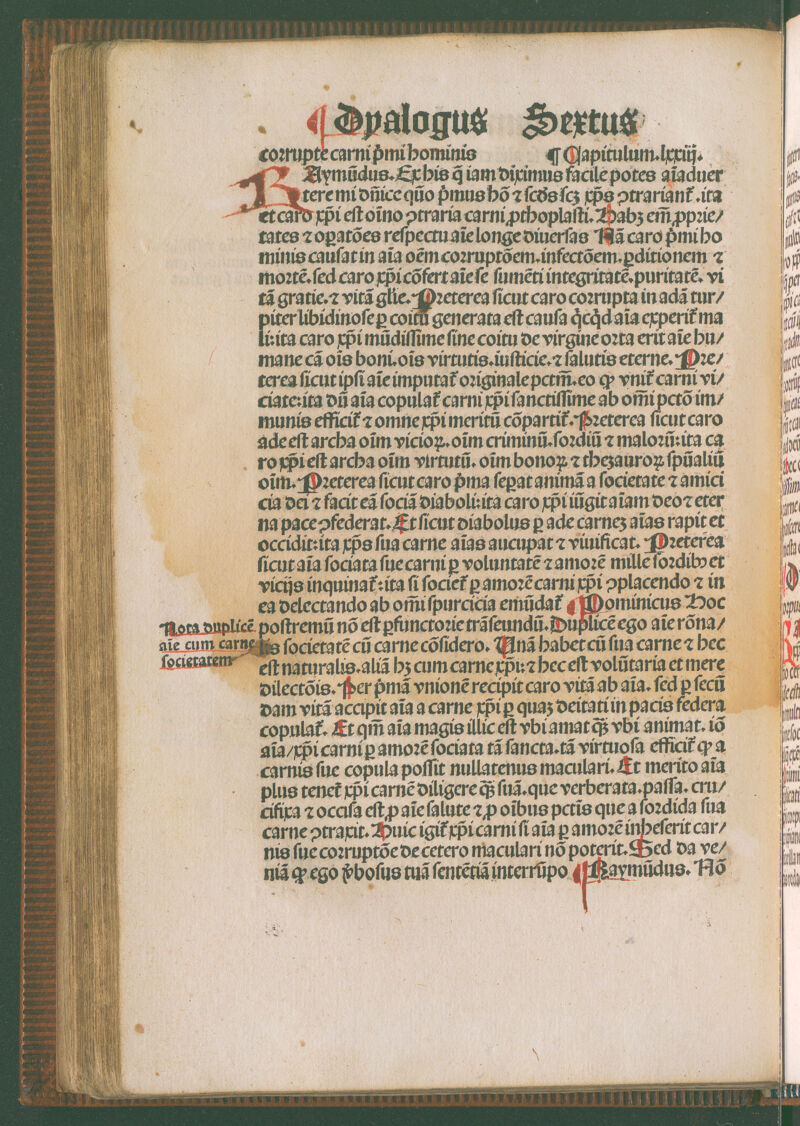 ¶ Dyalogus Sextus
corrupte carni p̄mi hominis ¶ Capitulum.lxxiij.
RAymūdus. Ex his q̄ iam diximus facile potes aīaduer
tere mi dn̄ice qūo p̄mus hō ⁊ scd̄s scꝫ xp̄s ꝯtrariant᷑.ita
et caro xp̄i est oīno ꝯtraria carni ꝓthoplasti. Habꝫ em̄ ꝓprie/
tates ⁊ oꝑatōes respectu aīe longe diuersas Nā caro p̄mi ho
minis causat in aīa oēm corruptōem.infectōem.ꝑditionem ⁊
mortē. sed caro xp̄i cōfert aīe se sumēti integritatē.puritatē. vi
tā gratie.⁊ vitā glīe. Preterea sicut caro corrupta in adā tur/
piter libidinose ꝑ coitū generata est causa q̇cq̇d aīa experit᷑ ma
li:ita caro xp̄i mūdissime sine coitu de virgine orta erit aīe hu/
mane cā oīs boni.oīs virtutis.iusticie.⁊ salutis eterne. Pre/
terea sicut ipsi aīe imputat᷑ originale pctm̄.eo ꝙ vnit᷑ carni vi/
ciate:ita dū aīa copulat᷑ carni xp̄i sanctissime ab om̄i pctō im/
munis efficit᷑ ⁊ omne xp̄i meritū cōpartit᷑. Preterea sicut caro
ade est archa oīm vicioꝝ.oīm criminū.sordiū ⁊ malorū:ita ca
ro xp̄i est archa oīm virtutū. oīm bonoꝝ ⁊ thezauroꝝ sp̄ualiū
oīm. Preterea sicut caro p̄ma seꝑat animā a societate ⁊ amici
cia dei ⁊ facit eā sociā diaboli:ita caro xp̄i iūgit aīam deo ⁊ eter
na pace ꝯfederat. Et sicut diabolus ꝑ ade carneꝫ aīas rapit et
occidit:ita xp̄s sua carne aīas aucupat ⁊ viuificat. Preterea
sicut aīa sociata sue carni ꝑ voluntatē ⁊ amorē mille sordibꝰ et
vicijs inquinat᷑:ita si societ᷑ ꝑ amorē carni xp̄i ꝯplacendo ⁊ in
ea delectando ab om̄i spurcicia emūdat᷑ ¶ Dominicus Hoc
postremū nō est ꝑfunctorie trāseundū. Duplicē ego aīe rōna/
lis societatē cū carne cōsidero. Unā habet cū sua carne ⁊ hec
est naturalis.aliā hꝫ cum carne xp̄i:⁊ hec est volūtaria et mere
dilectōis. Per p̄mā vnionē recipit caro vitā ab aīa. sed ꝑ secū
dam vitā accipit aīa a carne xp̄i ꝑ quaꝫ deitati in pacis federa
copulat᷑. Et qm̄ aīa magis illic est vbi amat qꝫ̄ vbi animat. iō
aīa/xp̄i carni ꝑ amorē sociata tā sancta.tā virtuosa efficit᷑ ꝙ a
carnis sue copula possit nullatenus maculari. Et merito aīa
plus tenet᷑ xp̄i carnē diligere qꝫ̄ suā.que verberata.passa. cru/
cifixa ⁊ occisa est ꝓ aīe salute ⁊ ꝓ oībus pctīs que a sordida sua
carne ꝯtraxit. Huic igit᷑ xp̄i carni si aīa ꝑ amorē inheserit car/
nis sue corruptōe de cetero maculari nō poterit. Sed da ve/
niā ꝙ ego v̄bosus tuā sentētiā interrūpo ¶ Raymūdus. Nō
Nota duplicē
aīe cum carne
societatem